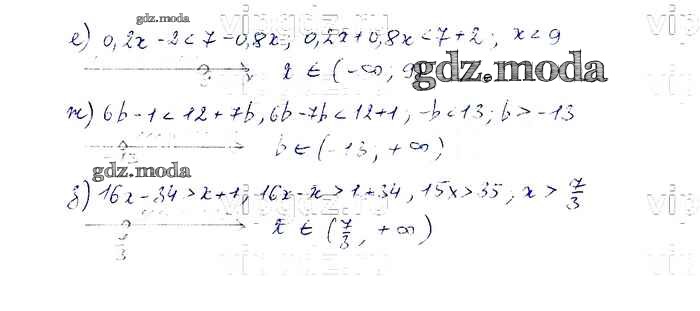 gdz.moda
е) 0,2x - 2 < 7 - 0,8x; 0,2x + 0,8x < 7 + 2; x < 9
x ∈ (-∞; 9
gdz.moda
ж) 6b - 1 < 12 + 7b, 6b - 7b < 12 + 1; -b < 13; b > -13
-13
b ∈ (-13; +∞)
gdz.moda
з) 16x - 34 > x + 1, 16x - x > 1 + 34, 15x > 35; x > 7/3
7/3
x ∈ (7/3, +∞)